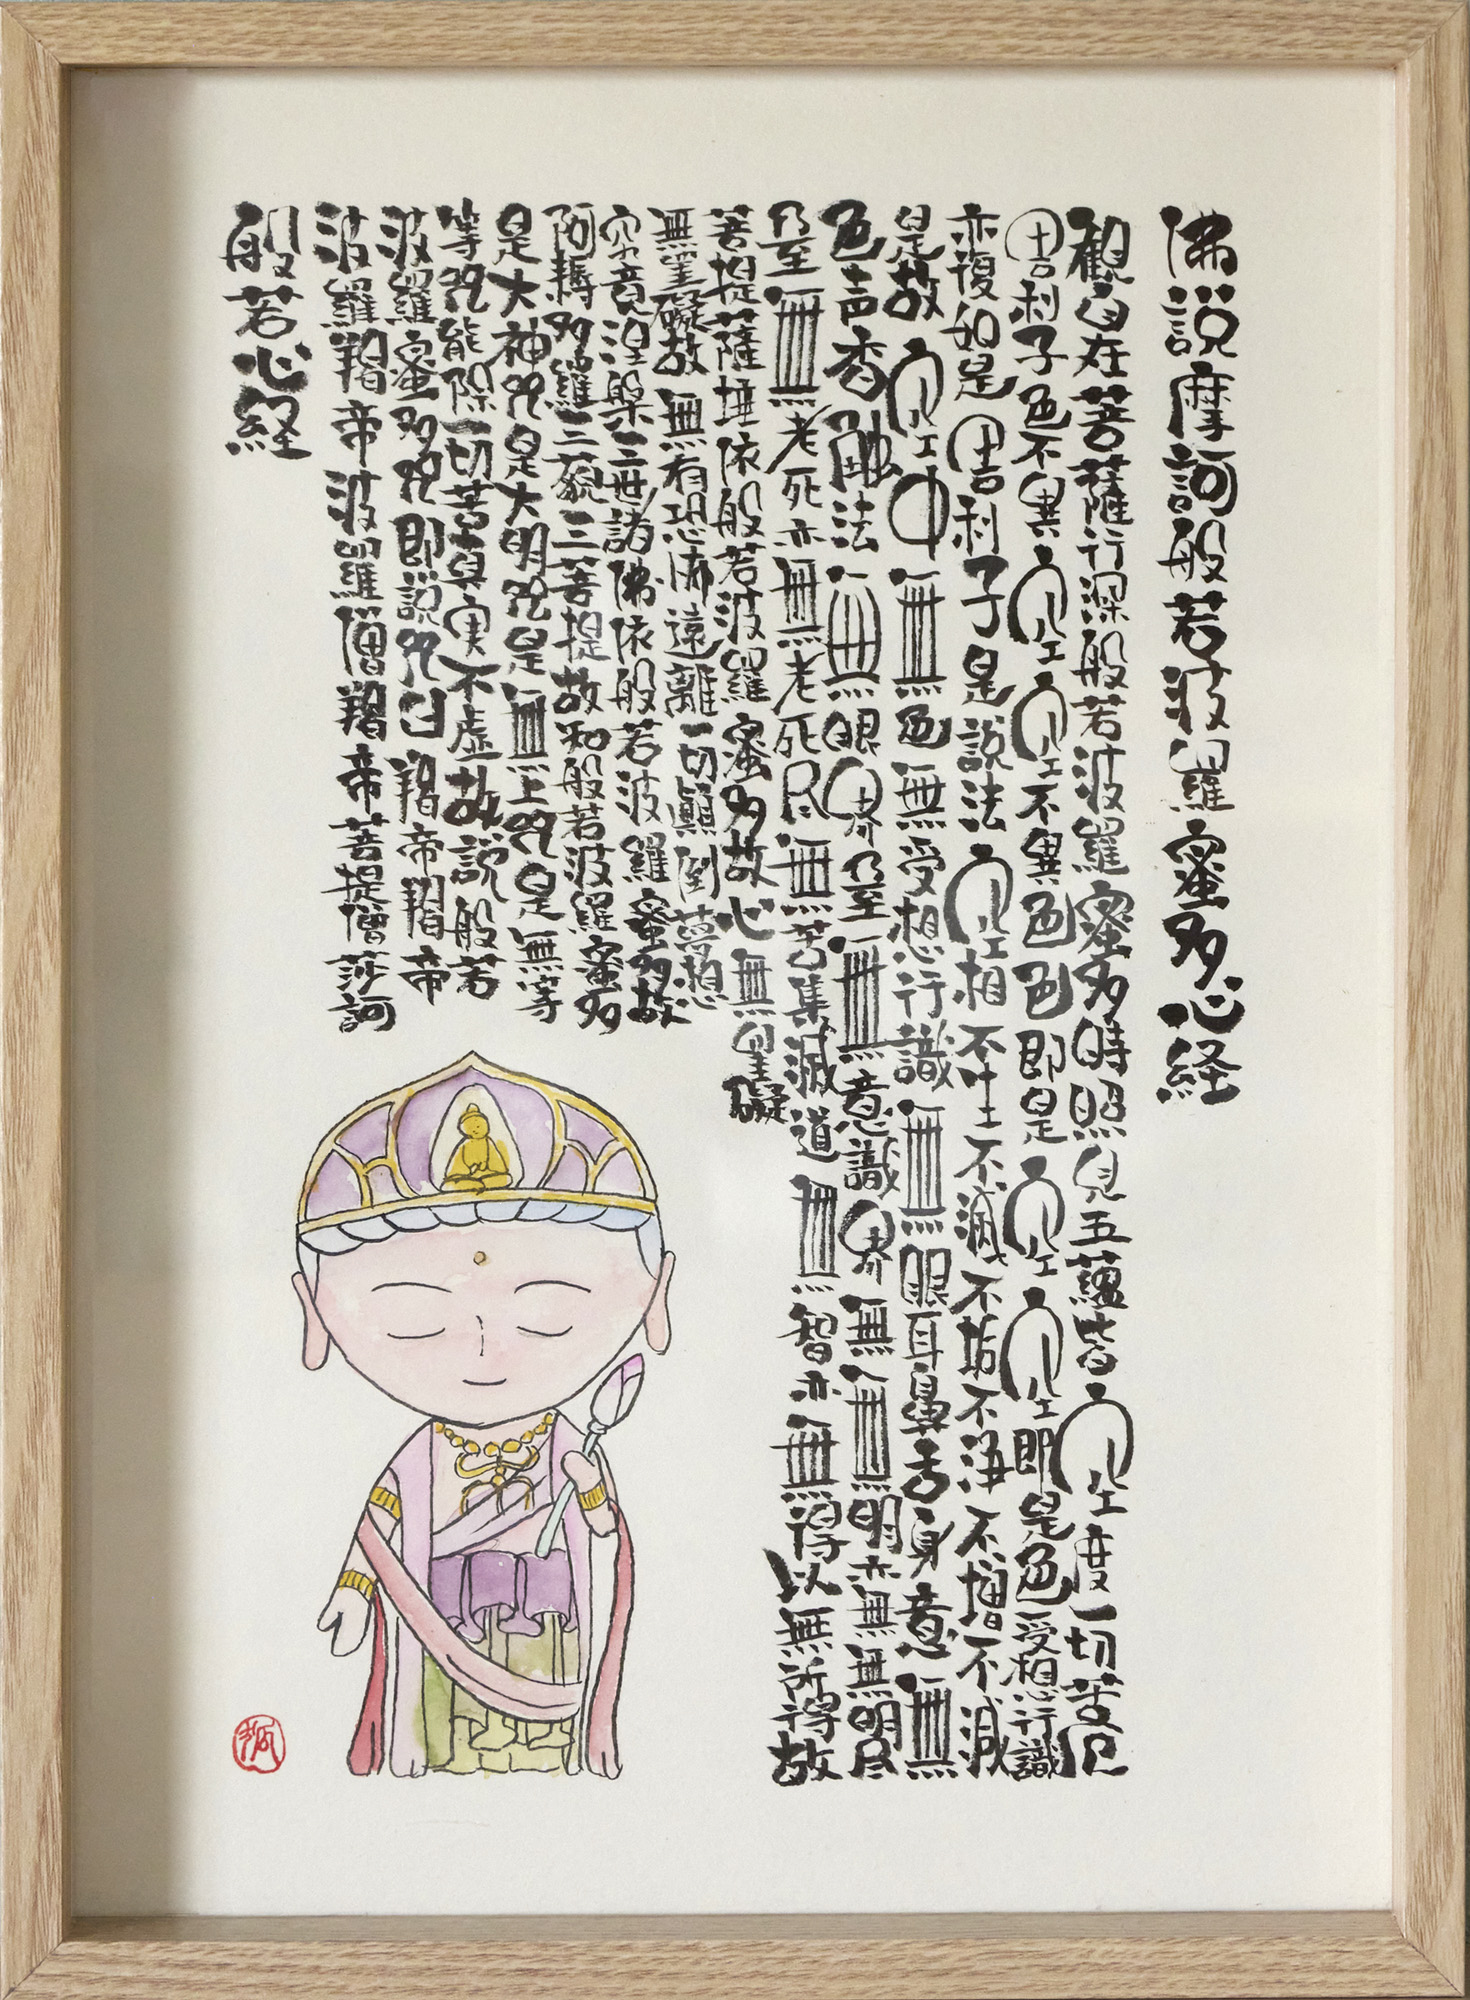 佛説摩訶般若波羅蜜多心経
觀自在菩薩行深般若波羅蜜多時照見五蘊皆空度一切苦厄
舎利子色不異空空不異色色即是空空即是色受想行識
亦復如是舎利子是説法空相不生不滅不垢不浄不増不減
是故空中無色無受想行識無眼耳鼻舌身意無
色声香触法無眼界乃至無意識界無無明亦無無明尽
乃至無老死亦無老死尽無苦集滅道無智亦無得以無所得故
菩提薩埵依般若波羅蜜多故心無罣礙
無罣礙故無有恐怖遠離一切顛倒夢想
究竟涅槃三世諸佛依般若波羅蜜多故
阿耨多羅三藐三菩提故知般若波羅蜜多
是大神呪是大明呪是無上呪是無等
等呪能除一切苦真実不虚故説般若
波羅蜜多呪即説呪曰羯帝羯帝
波羅羯帝波羅僧羯帝菩提僧莎訶
般若心経